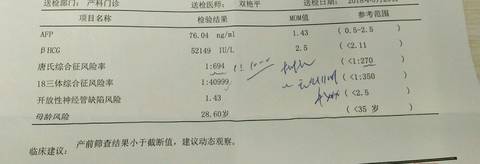 送检部门：产科门诊 送检医师：双艳平 送检日期：2018
项目名称 检验结果 MOM值 参考范围
AFP 76.04 ng/ml 1.43 (0.5-2.5)
βHCG 52149 IU/L 2.5 (<2.11)
唐氏综合征风险率 1:694 (<1:270)
18三体综合征风险率 1:40999 (<1:350)
开放性神经管缺陷风险 1.43 (<2.5)
母龄风险 28.60岁 (<35 岁)
临床建议： 产前筛查结果小于截断值，建议动态观察。